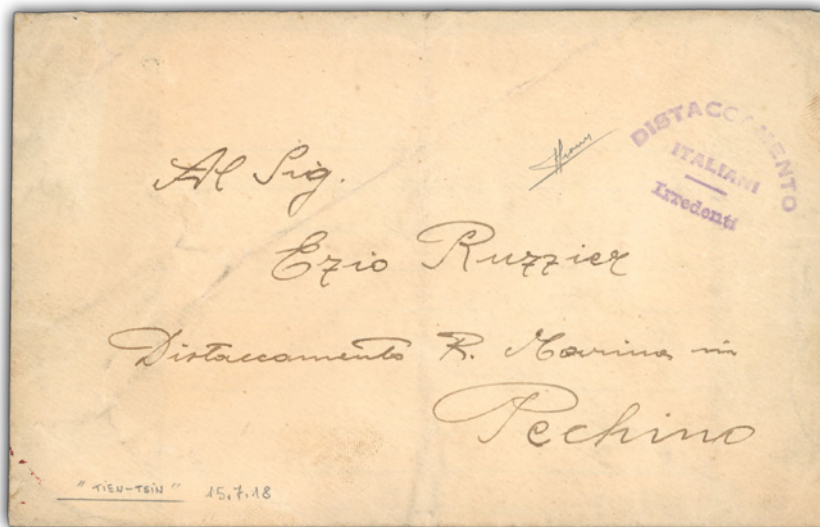 DISTACCAMENTO
ITALIANI
Irredenti
Al Sig.
Ezio Ruzzier
Distaccamento R. Marina in
Pechino
"TIEN-TSIN" 15.7.18